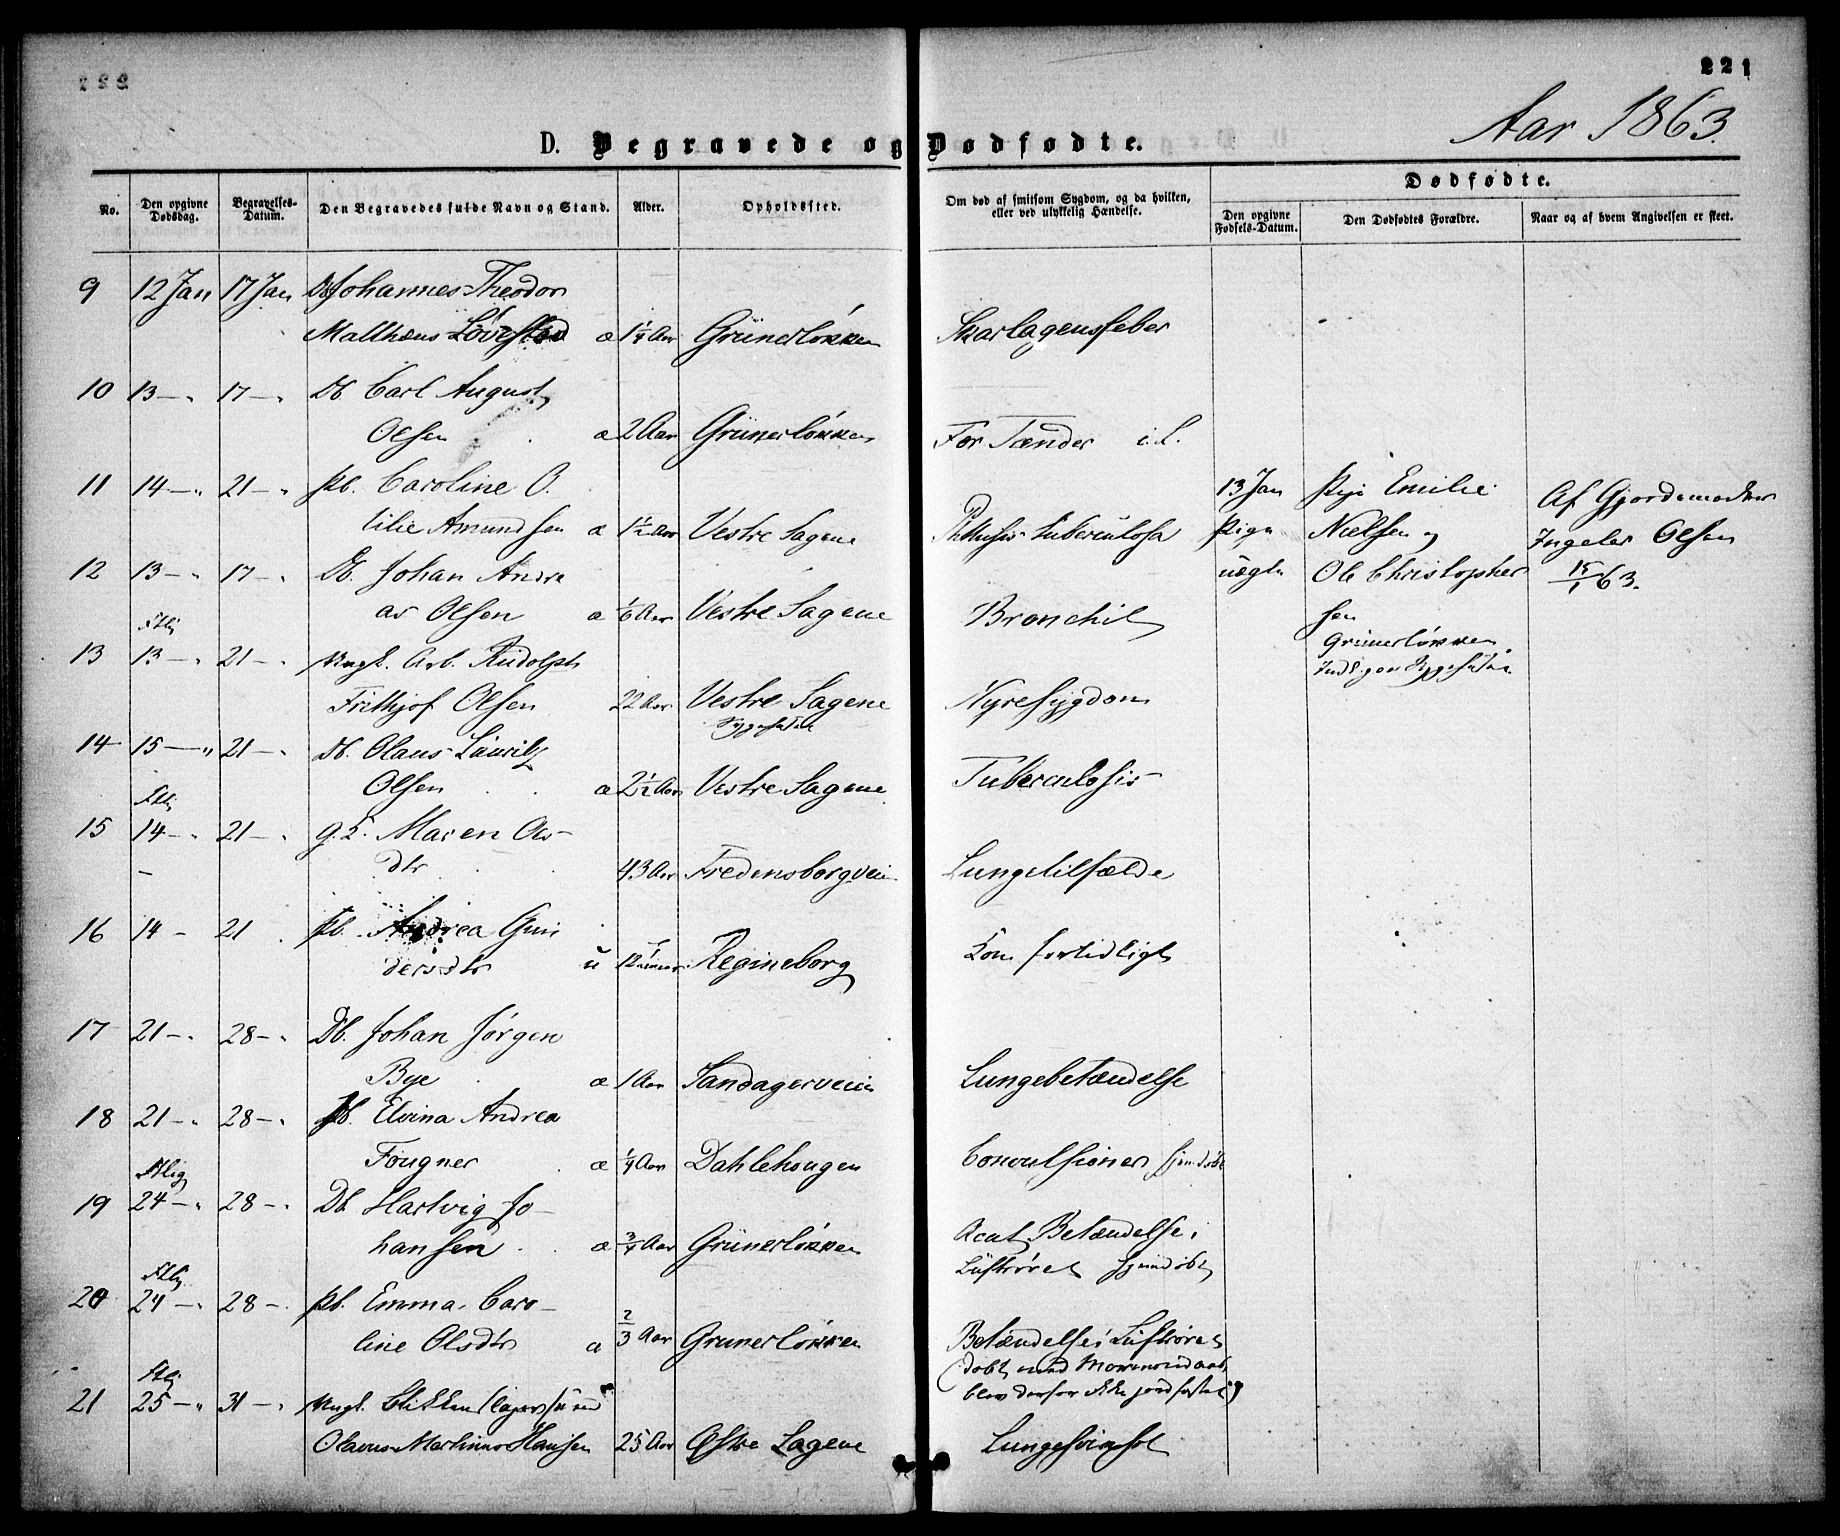 221
Aar 1863.
D. Begravede og Dødfødte.
No.
Den opgivne Dødsdag.
Begravelses-Datum.
Den Begravedes fulde Navn og Stand.
Alder.
Opholdssted.
Om død af smitsom Sygdom, og da hvilken, eller ved ulykkelig Hændelse.
Dødfødte.
Den opgivne Fødsels-Datum.
Den Dødfødtes Forældre.
Naar og af hvem Angivelsen er skeet.
9 12 Jan 17 Jan Db Johannes Theodor
Matthæus Løvestad æ 1 1/4 Aar Grünerløkken Skarlagensfeber
10 13 — " 17 — " Db Carl August
Olsen æ 2 Aar Grünerløkken For Tænder
11 14 — " 21 — " Pb. Caroline O.
tilie Amundsen æ 1 1/2 Aar Vestre Sagene Phthisis tuberculosa
13 Jan Pige Emilie Af Gjordemoder
Pige Nielsen og Ingeler Olsen
uægte Ole Christopher 15/1 63.
sen
Grünerløkken
12 13 — " 17 — " Db. Johan Andre
as Olsen æ 1/6 Aar Vestre Sagene Bronchit
13 13 — " 21 — " Ungk. Arb. Rudolph
Frithjof Olsen 22 Aar Vestre Sagene Nyresygdom
14 15 — " 21 — " Db. Olaus Lauritz
Olsen æ 2 1/2 Aar Vestre Sagene Tuberculosis
15 14 — " 21 — " g. K. Maren Ols-
dtr 43 Aar Fredensborgveien Lungetilfælde
16 14 — 21 Pb. Andrea Gun
dersdtr u Regineborg Kom fortidligt
17 21 — " 28 — " Db. Johan Jørgen
Bye æ 1 Aar Sandagerveien Lungebetændelse
18 21 — " 28 — " Pb. Elvina Andrea
Fougner æ 1/4 Aar Dahlehougen Convulsioner hjemdøbt
19 24 — " 28 — " Db. Hartvig Jo-
hansen æ 3/4 Aar Grünerløkken Acut Betændelse i
Luftrøret hjemdøbt
20 24 — " 28 — " Pb. Emma Caro-
line Olsdtr æ 2/3 Aar Grünerløkken Betændelse i Luftrøret
(døbt med Mormondaab,
blev derfor ikke jordfæstet)
21 25 — " 31 — " Ungk.
Olavus Martinus Hansen 25 Aar Østre Sagene Lungesvinsot